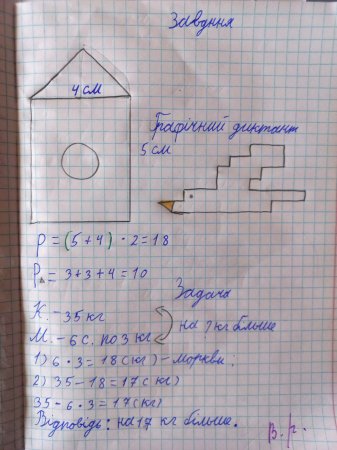 Завдння
4 см
Графічний диктант
5 см
P = (5 + 4) · 2 = 18
P△ = 3 + 3 + 4 = 10
Задача
К. – 35 кг
на ? кг більше
М. – 6 с. по 3 кг
1) 6 · 3 = 18 (кг) – моркви;
2) 35 – 18 = 17 (кг)
35 – 6 · 3 = 17 (кг)
Відповідь: на 17 кг більше.
В. г.